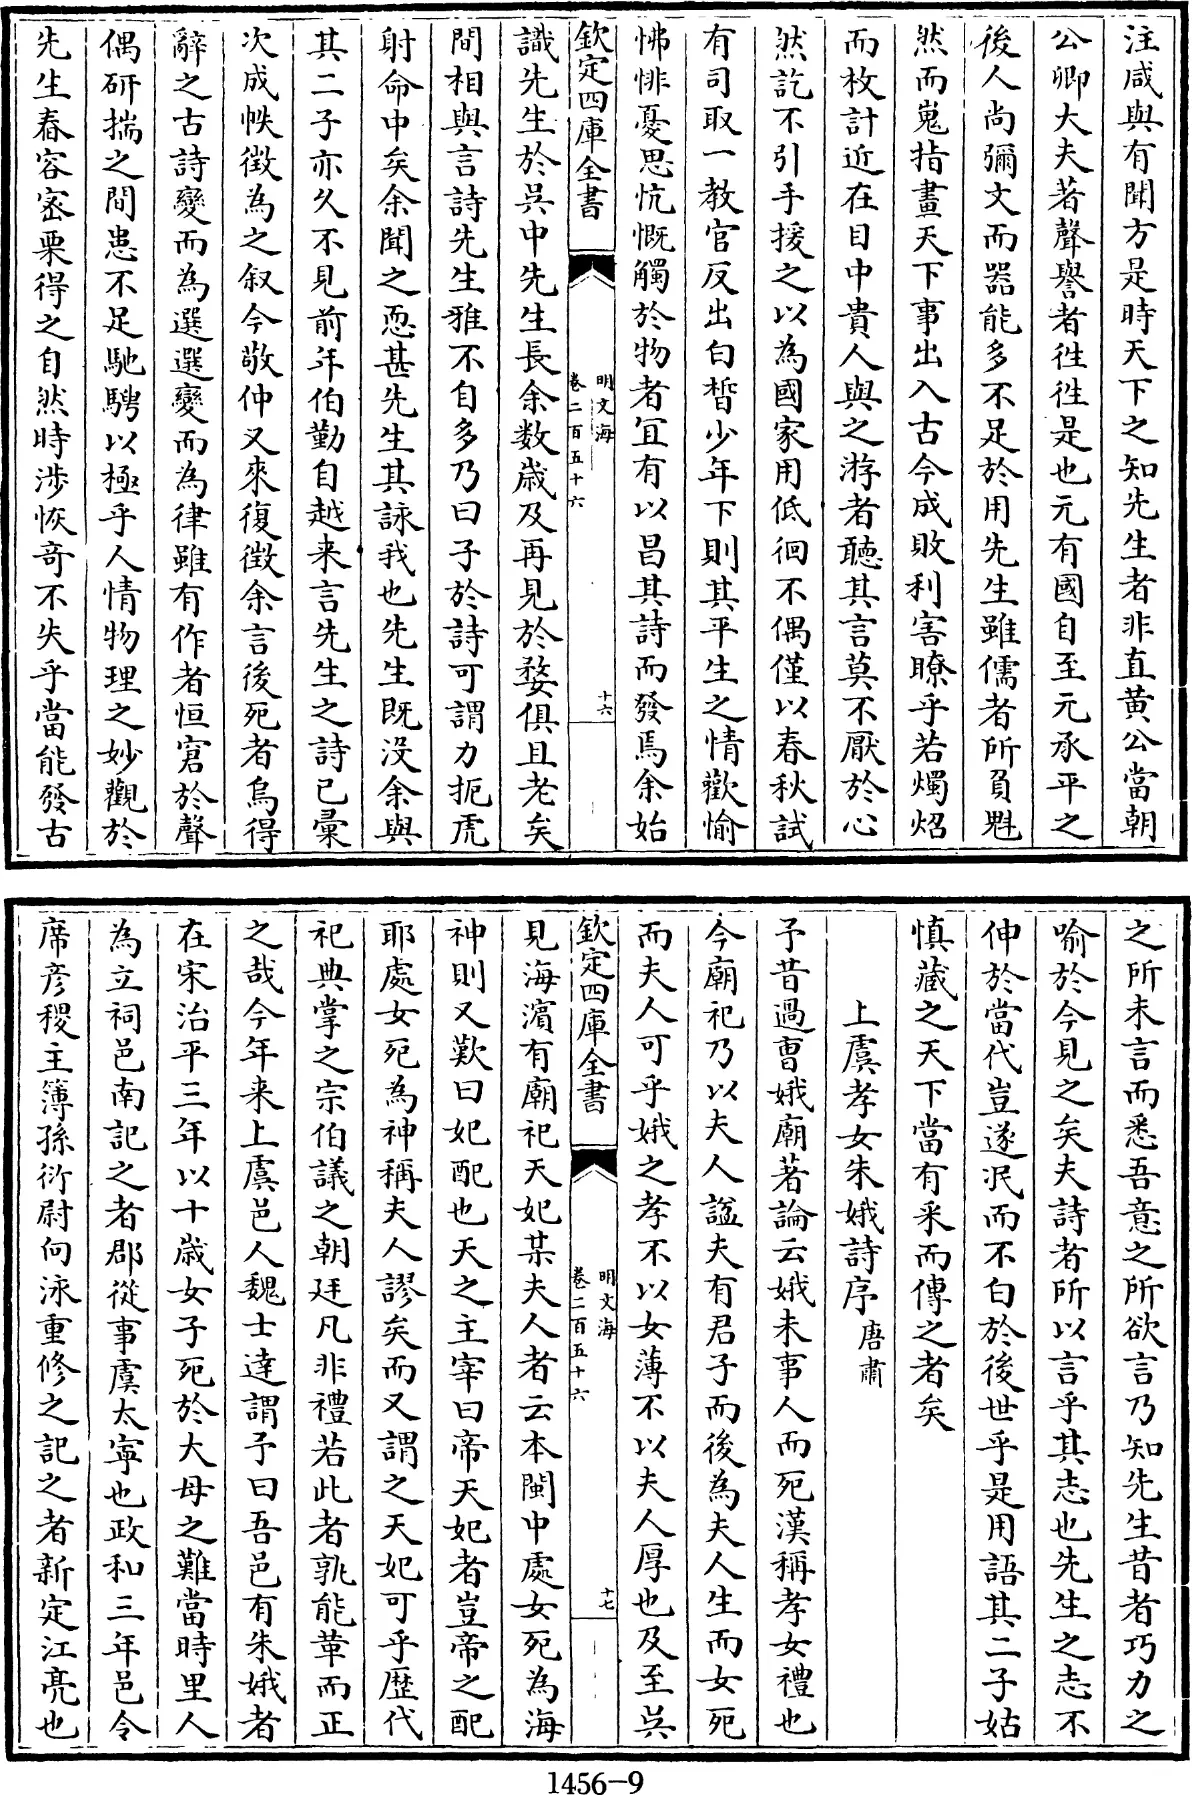 注咸與有聞方是時天下之知先生者非直黄公當朝
公卿大夫著聲譽者徃徃是也元有國自至元承平之
後人尚彌文而器能多不足於用先生雖儒者所負魁
然而嵬指畫天下事出入古今成敗利害瞭乎若燭炤
而枚計近在目中貴人與之游者聽其言莫不厭於心
然訖不引手援之以為國家用低徊不偶僅以春秋試
有司取一教官反出白皙少年下則其平生之情歡愉
怫悱憂思忼慨觸於物者宜有以昌其詩而發焉余始
欽定四庫全書
明文海
卷二百五十六
十六
識先生於吳中先生長余数歳及再見於婺俱且老矣
間相與言詩先生雅不自多乃曰子於詩可謂力扼虎
射命中矣余聞之恧甚先生其詠我也先生既没余與
其二子亦久不見前年伯勤自越来言先生之詩已彚
次成帙徴為之叙今敬仲又來復徴余言後死者烏得
辭之古詩變而為選選變而為律雖有作者恒窘於聲
偶研揣之間患不足馳騁以極乎人情物理之妙觀於
先生舂容宻栗得之自然時渉恢奇不失乎當能發古
之所未言而悉吾意之所欲言乃知先生昔者巧力之
喻於今見之矣夫詩者所以言乎其志也先生之志不
伸於當代豈遂泯而不白於後世乎是用語其二子姑
慎藏之天下當有采而傳之者矣
上虞孝女朱娥詩序 唐肅
予昔過曹娥廟著論云娥未事人而死漢稱孝女禮也
今廟祀乃以夫人諡夫有君子而後為夫人生而女死
而夫人可乎娥之孝不以女薄不以夫人厚也及至吳
欽定四庫全書
明文海
卷二百五十六
十七
見海濵有廟祀天妃某夫人者云本閩中處女死為海
神則又歎曰妃配也天之主宰曰帝天妃者豈帝之配
耶處女死為神稱夫人謬矣而又謂之天妃可乎歴代
祀典掌之宗伯議之朝廷凡非禮若此者孰能革而正
之哉今年来上虞邑人魏士逹謂予曰吾邑有朱娥者
在宋治平三年以十歳女子死於大母之難當時里人
為立祠邑南記之者郡從事虞太寜也政和三年邑令
席彦稷主簿孫衍尉向泳重修之記之者新定江亮也
1456-9